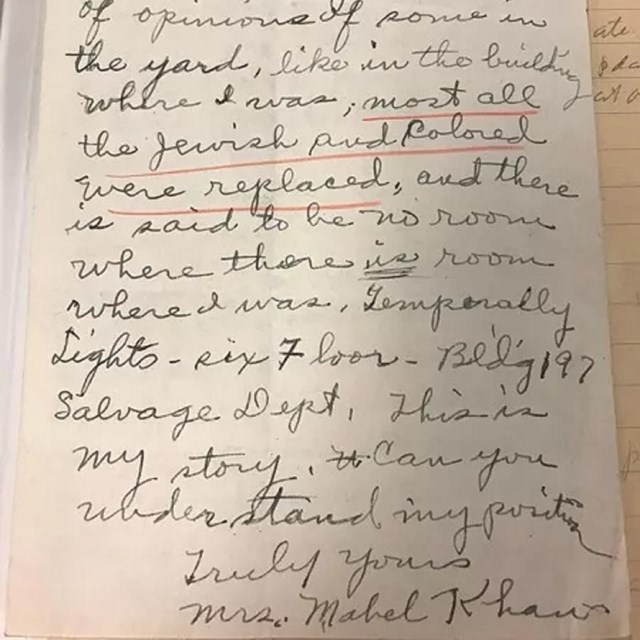 of opinions of some in
the yard, like in the building
where I was, most all
the Jewish and Colored
were replaced, and there
is said to be no room
where there is room
where I was, Temporally
Lights - six Floor - Bld'g 197
Salvage Dept, This is
my story, Can you
understand my position
Truly Yours
Mrs. Mabel